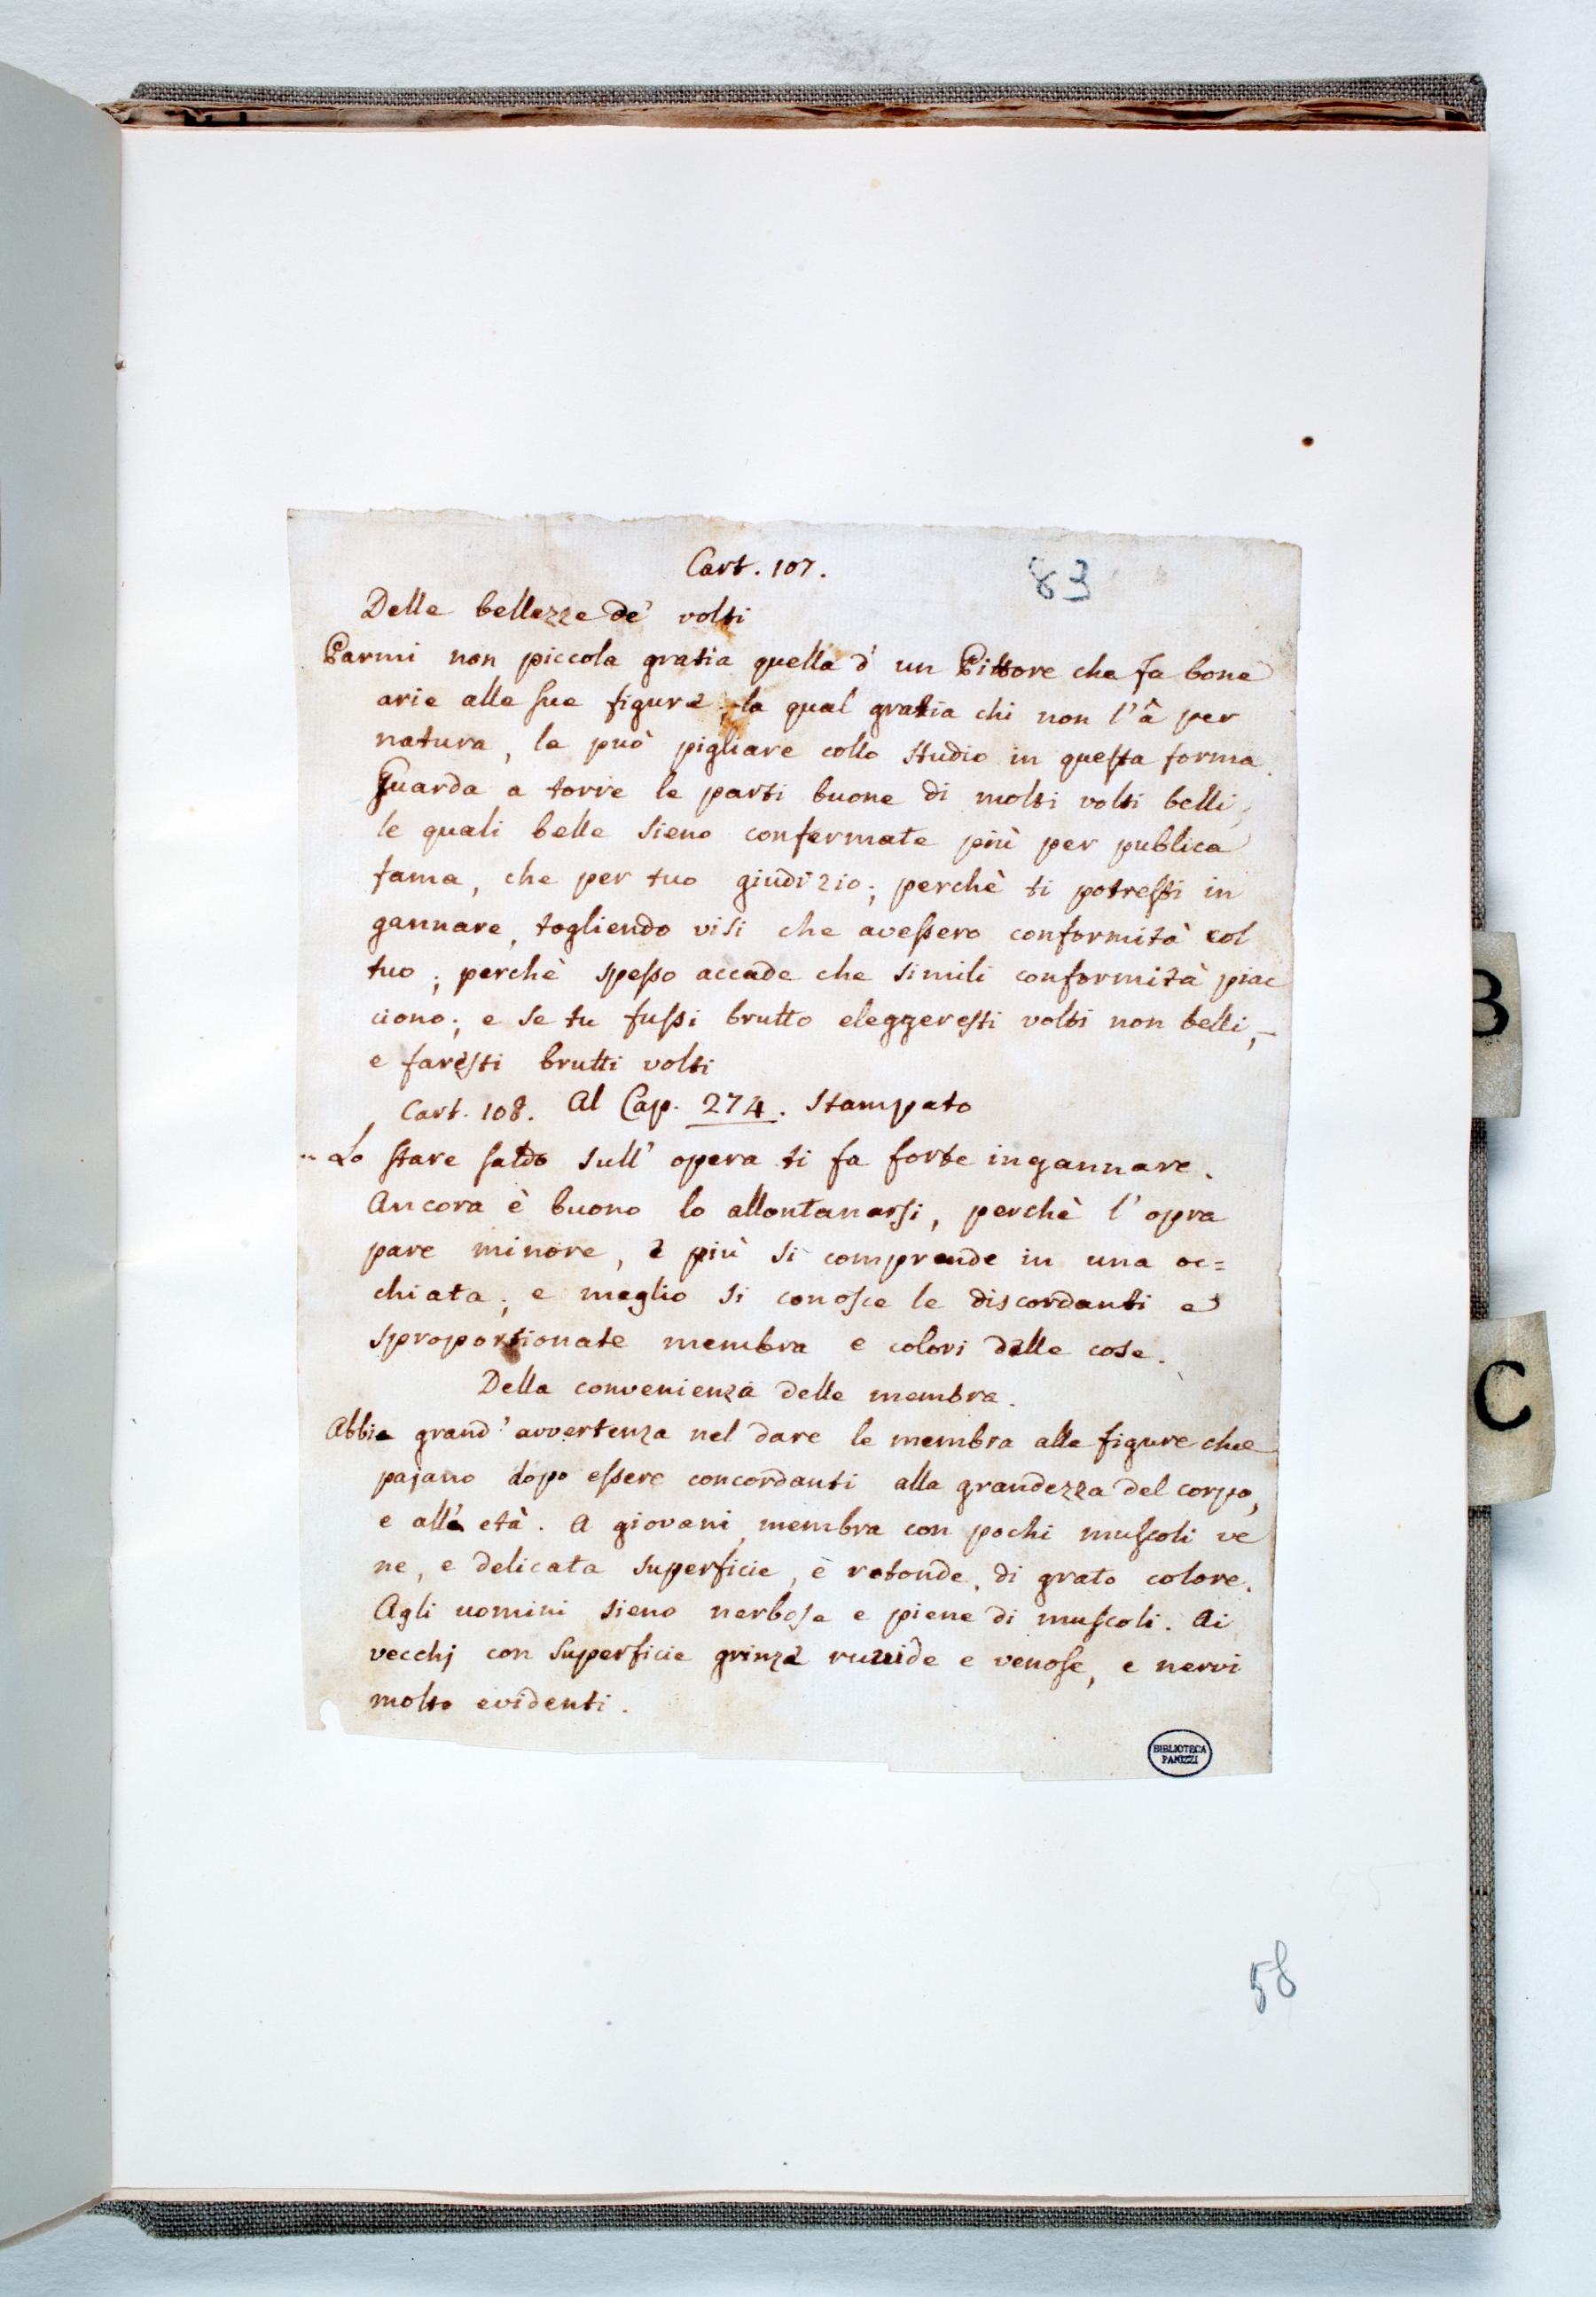 Cart. 107.
83
Delle bellezze de' volti
Parmi non piccola gratia quella d' un Pittore che fa bone
arie alle sue figure; la qual gratia chi non l'à per
natura, la può pigliare collo studio in questa forma.
Guarda a torre le parti buone di molti volti belli,
le quali belle sieno confermate più per publica
fama, che per tuo giudizio; perchè ti potresti in
gannare, togliendo visi che avessero conformità col
tuo; perchè spesso accade che simili conformità piac
ciono; e se tu fussi brutto eleggeresti volti non belli,
e faresti brutti volti
Cart. 108. Al Cap. 274. Stampato
.. Lo stare saldo sull' opera ti fa forte ingannare.
Ancora è buono lo allontanarsi, perchè l' opra
pare minore, e più si comprende in una oc=
chiata; e meglio si conosce le discordanti e
sproportionate membra e colori delle cose.
Della convenienza delle membra.
Abbia grand' avvertenza nel dare le membra alle figure che
pajano dopo essere concordanti alla grandezza del corpo,
e all'à età. A giovani, membra con pochi muscoli ve
ne, e delicata superficie, e rotonde, di grato colore.
Agli uomini sieno nerbose e piene di muscoli. Ai
vecchj con superficie grinze ruvide e venose, e nervi
molto evidenti.
BIBLIOTECA
PANIZZI
58
B
C